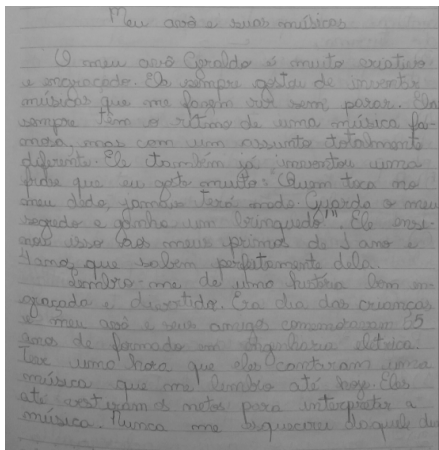 Meu avô e suas músicas
O meu avô Geraldo é muito criativo
e engraçado. Ele sempre gosta de inventar
músicas que me fazem rir sem parar. Elas
sempre têm o ritmo de uma música fa-
mosa, mas com um assunto totalmente
diferente. Ele também já inventou uma
que eu gosto muito: "Quem toca no
meu dedo, jamais terá medo. Guarda o meu
segredo e ganha um brinquedo!" Ele ensi-
nou isso aos meus primos de 1 ano e
4 anos, que sabem perfeitamente dela.
Lembro-me de uma história bem en-
graçada e divertida. Era dia das crianças
e meu avô e seus amigos comemoravam 35
anos de formado em Engenharia elétrica.
Teve uma hora que eles cantaram uma
música que me lembro até hoje. Eles
até os netos para interpretar a
música. Nunca me esquecerei daquele dia